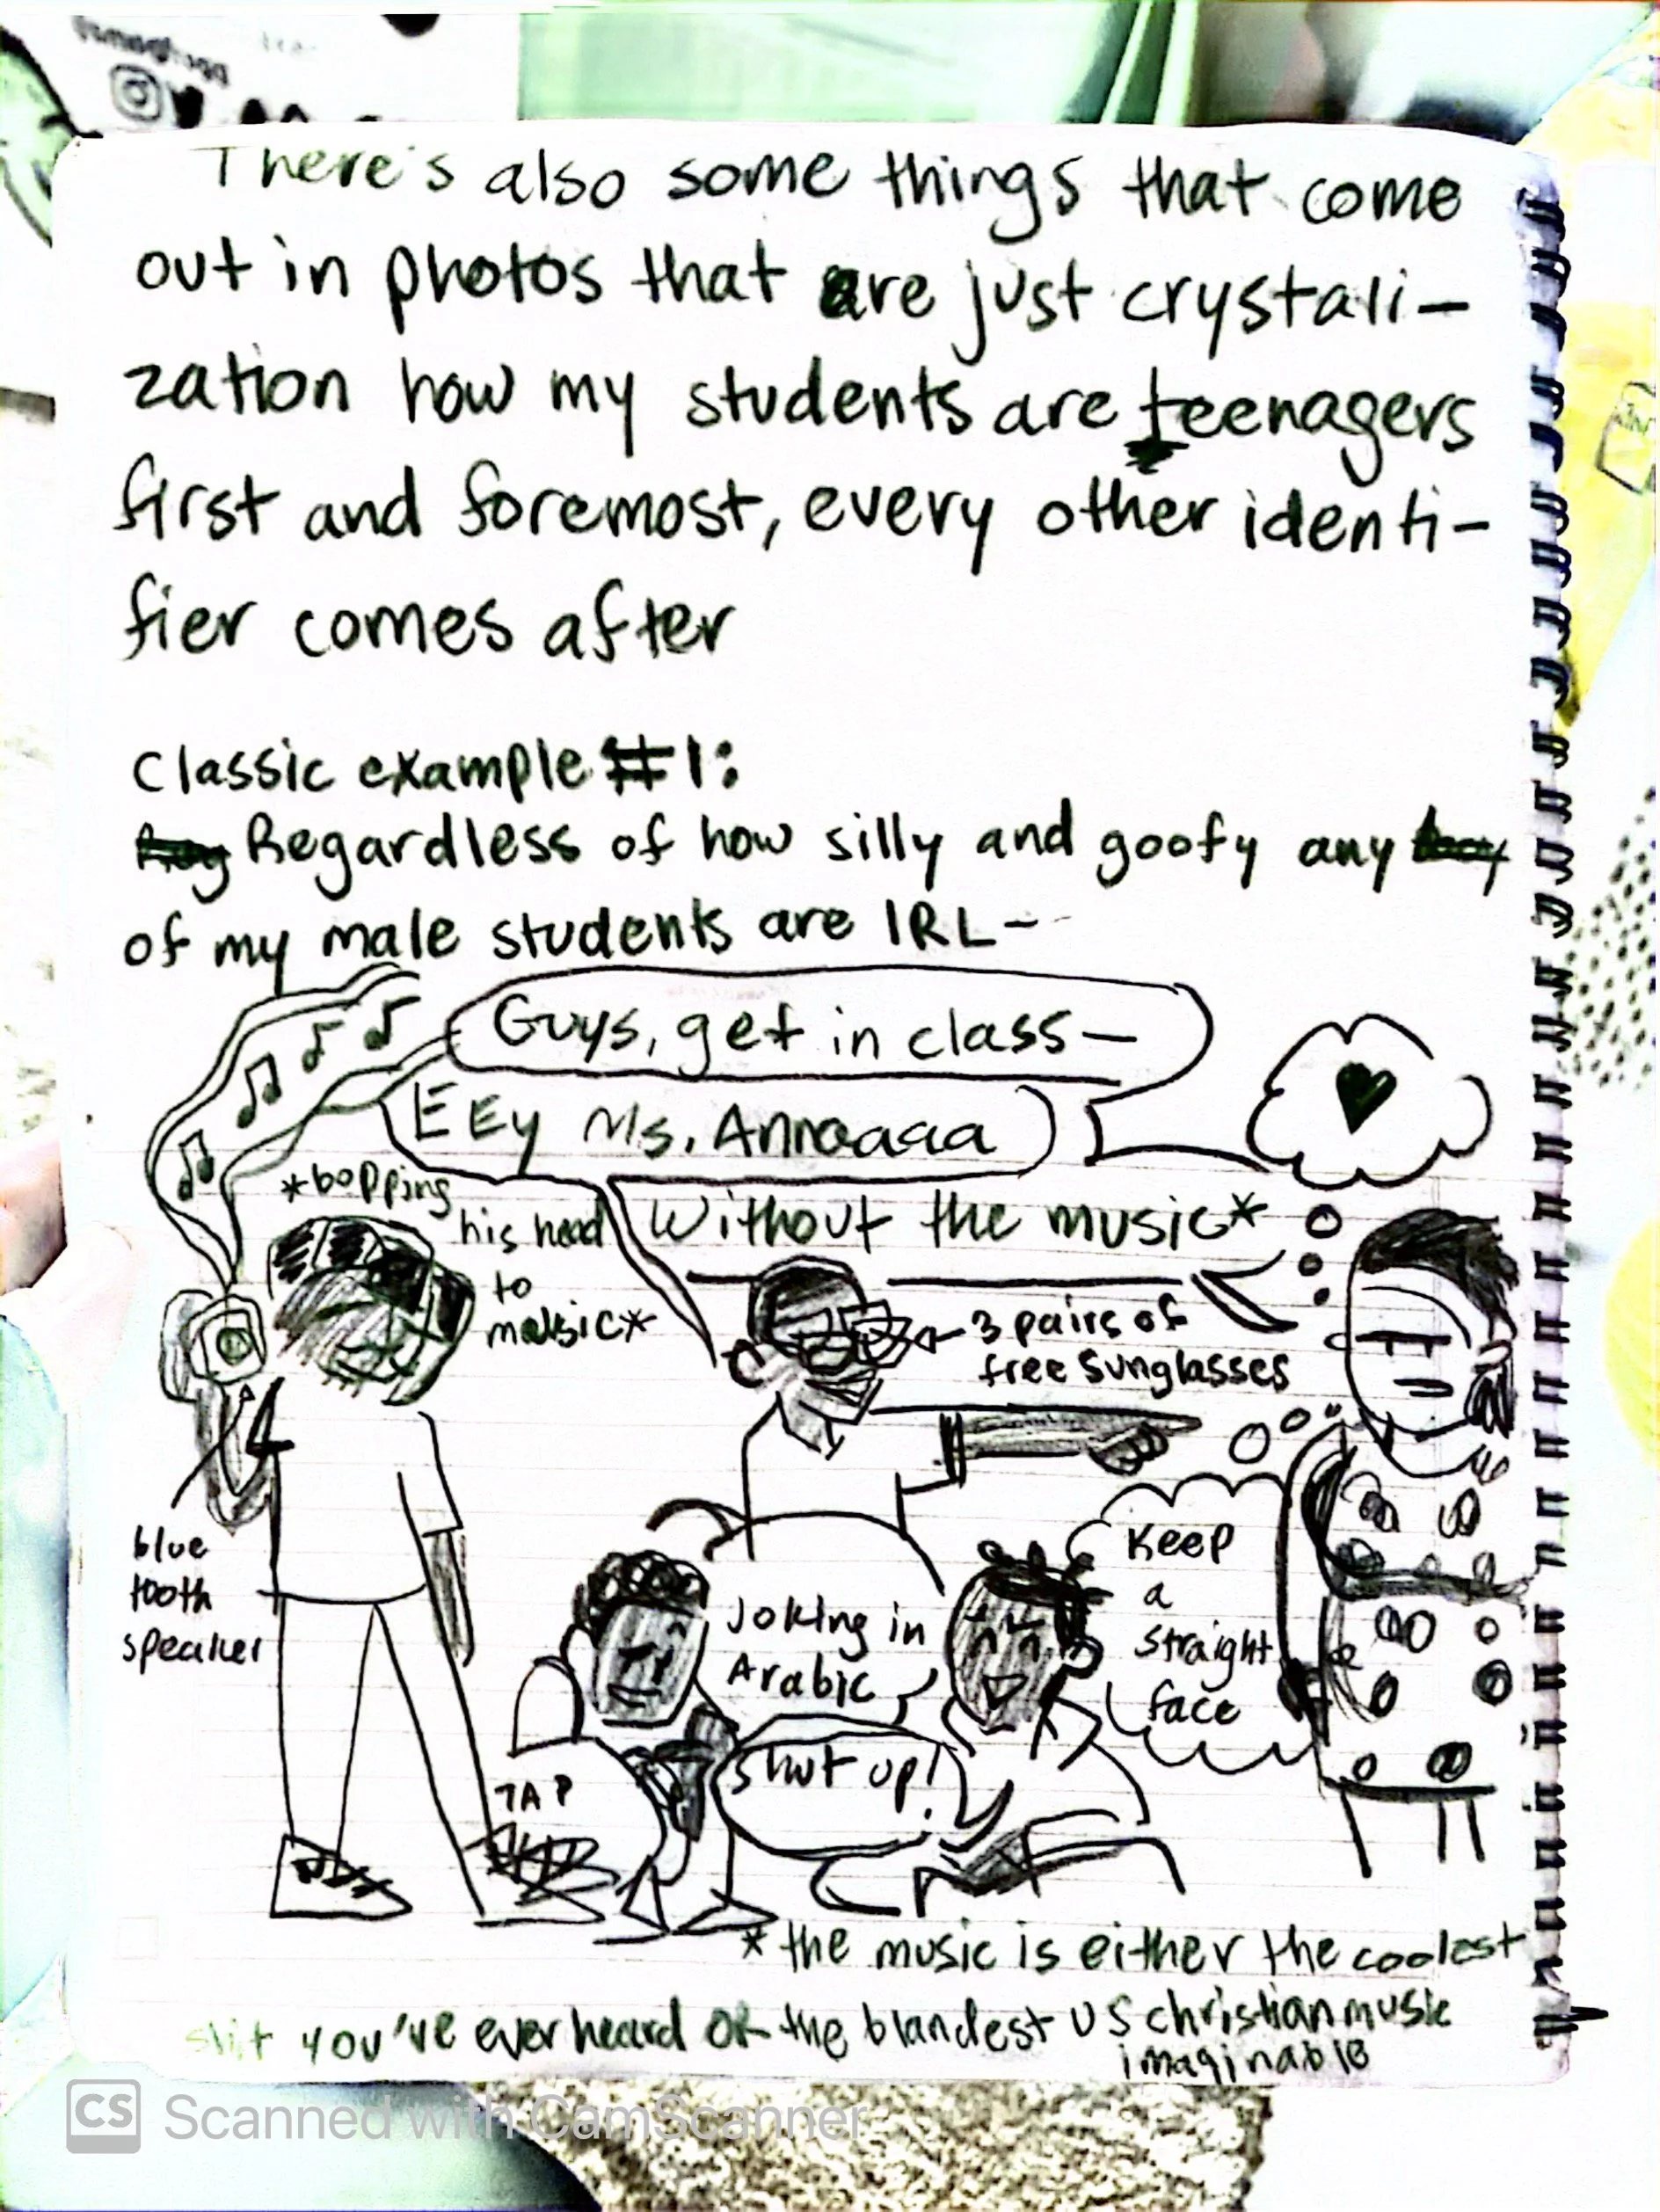 There's also some things that come
out in photos that are just crystali-
zation how my students are teenagers
first and foremost, every other identi-
fier comes after
Classic example #1:
Regardless of how silly and goofy any
of my male students are IRL--
Guys, get in class—
EEy Ms. Annaaaaa
*bopping
his head
to
music*
Without the music*
3 pairs of
free sunglasses
blue
tooth
speaker
Joking in
Arabic
Keep
a
straight
face
Shut up!
TAP
*the music is either the coolest
shit you've ever heard OR the blandest US christian music
imaginable
CS Scanned with CamScanner